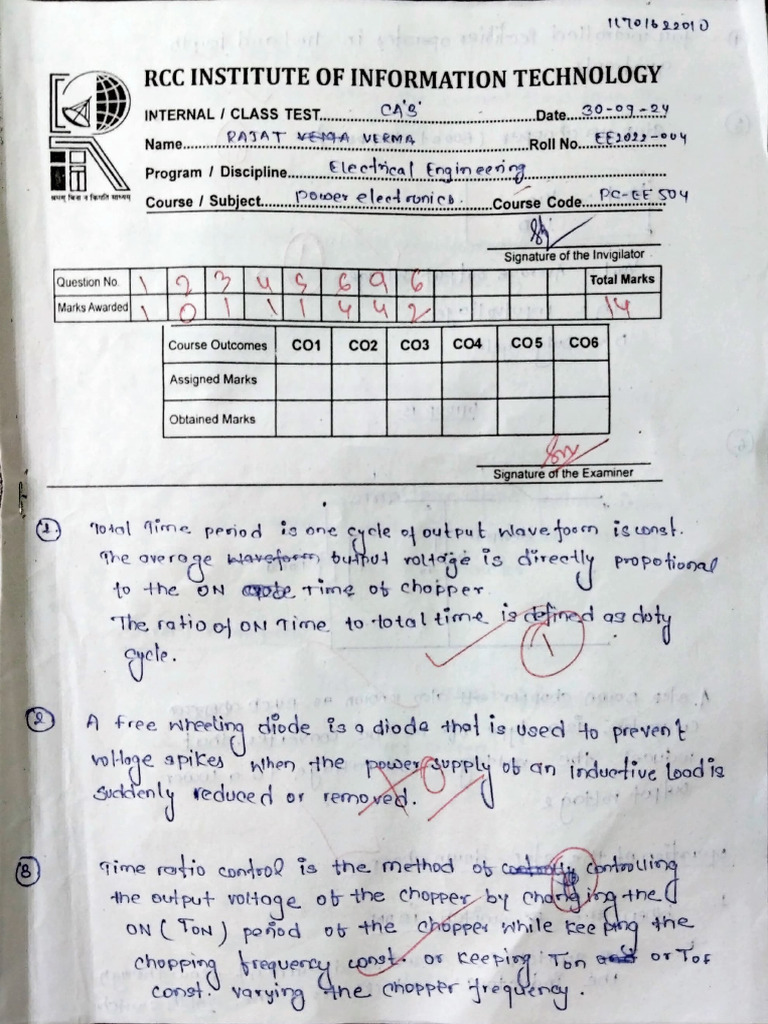 11701622010
RCC INSTITUTE OF INFORMATION TECHNOLOGY
INTERNAL / CLASS TEST CA'3' Date 30-09-24
Name RAJAT VERMA Roll No. EE2022-004
Program / Discipline Electrical Engineering
Course / Subject Power electronics. Course Code PC-EE 504
Signature of the Invigilator
Question No. 1 2 3 4 5 6 9 6 Total Marks
Marks Awarded 1 0 1 1 1 4 4 2 14
Course Outcomes CO1 CO2 CO3 CO4 CO5 CO6
Assigned Marks
Obtained Marks
Signature of the Examiner
1 Total Time period is one cycle of output waveform is const.
The average output voltage is directly propotional
to the ON Time of chopper.
The ratio of ON Time to total time is defined as duty
cycle.
1
2 A free wheeling diode is a diode that is used to prevent
voltage spikes when the power supply of an inductive load is
suddenly reduced or removed.
0
3 Time ratio control is the method of controlling
the output voltage of the chopper by changing the
ON (TON) period of the chopper while keeping the
chopping frequency const. or keeping Ton or Tof
const. varying the chopper frequency.